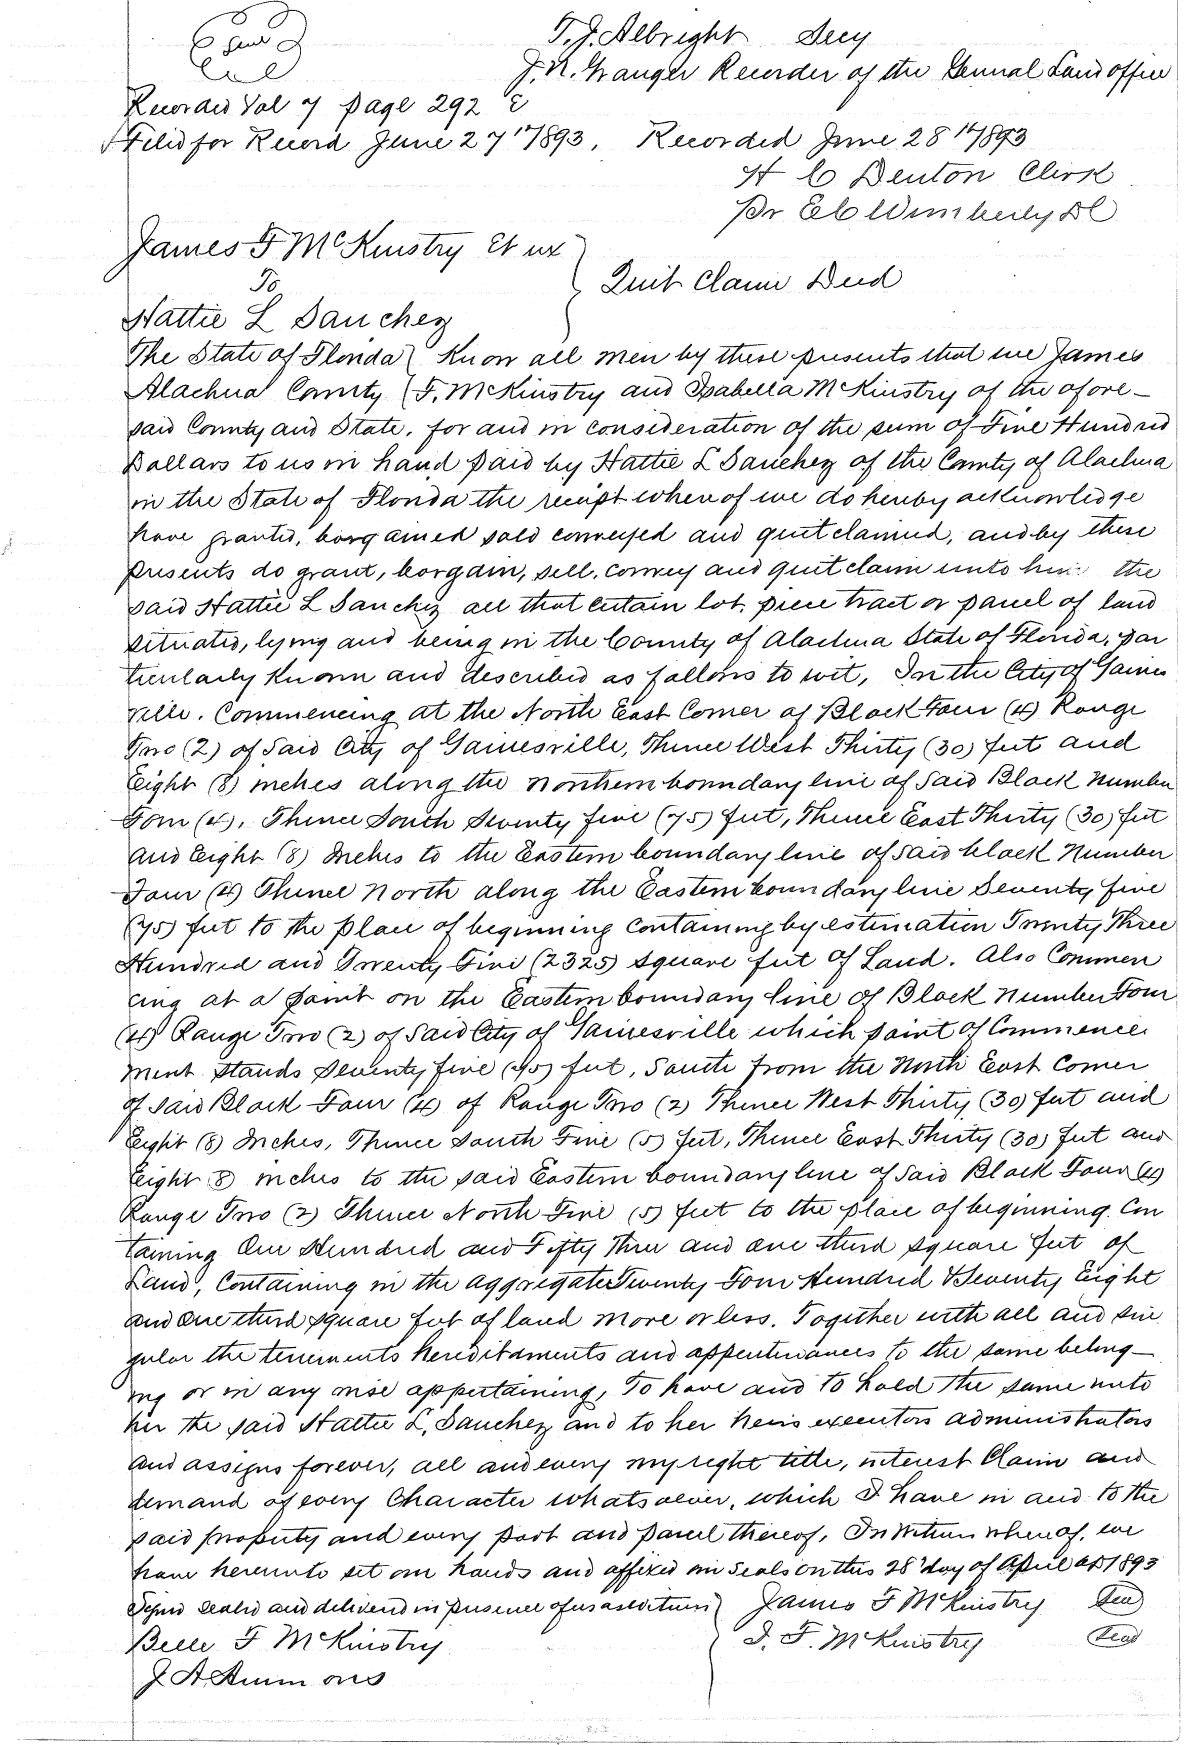 Seal
T. J. Albright Secy
J. N. Granger Recorder of the General Land office
Recorded Vol 7 page 292
Filed for Record June 27th 1893. Recorded June 28th 1893
H C Denton Clerk
Pr E C Wimberly DC
James F McKinstry et ux
To
Quit Claim Deed
Hattie L Sanchez
The State of Florida Know all men by these presents that we James
Alachua County F. McKinstry and Isabella McKinstry of the afore-
said County and State, for and in consideration of the sum of Five Hundred
Dollars to us in hand paid by Hattie L Sanchez of the County of Alachua
in the State of Florida the receipt whereof we do hereby acknowledge
have granted, bargained sold conveyed and quit claimed, and by these
presents do grant, bargain, sell, convey and quit claim unto the
said Hattie L Sanchez all that certain lot, piece tract or parcel of land
situated, lying and being in the County of Alachua State of Florida, par
ticularly known and described as follows to wit, In the City of Gaines
ville. Commencing at the North East Corner of Block Four (4) Range
Two (2) of Said City of Gainesville, Thence West Thirty (30) feet and
Eight (8) inches along the Northern boundary line of Said Block Number
Four (4). Thence South Seventy five (75) feet, Thence East Thirty (30) feet
and Eight (8) Inches to the Eastern boundary line of said block Number
Four (4) Thence North along the Eastern boundary line Seventy five
(75) feet to the place of beginning containing by estimation Twenty Three
Hundred and Twenty Five (2325) square feet of Land. Also Commen
cing at a point on the Eastern boundary line of Block Number Four
(4) Range Two (2) of Said City of Gainesville which point of Commence
ment stands seventy five (75) feet, South from the North East Corner
of said Block Four (4) of Range Two (2) Thence West Thirty (30) feet and
Eight (8) Inches, Thence South Five (5) feet, Thence East Thirty (30) feet and
Eight (8) inches to the said Eastern boundary line of Said Block Four (4)
Range Two (2) Thence North Five (5) feet to the place of beginning. Con
taining One Hundred and Fifty Three and one third square feet of
Land, Containing in the aggregate Twenty Four Hundred & Seventy Eight
and one third square feet of land more or less. Together with all and sin
gular the tenements hereditaments and appurtenances to the same belong-
ing or in any wise appertaining, To have and to hold the same unto
her the said Hattie L, Sanchez and to her heirs executors administrators
and assigns forever, all and every my right title, interest Claim and
demand of every Character whatsoever, which I have in and to the
said property and every part and parcel thereof, In Witness whereof, we
have hereunto set our hands and affixed our Seals on this 28th day of April AD 1893
Signed sealed and delivered in presence of us as witness James F McKinstry Seal
Belle F McKinstry I. F. McKinstry Seal
J A Ammons